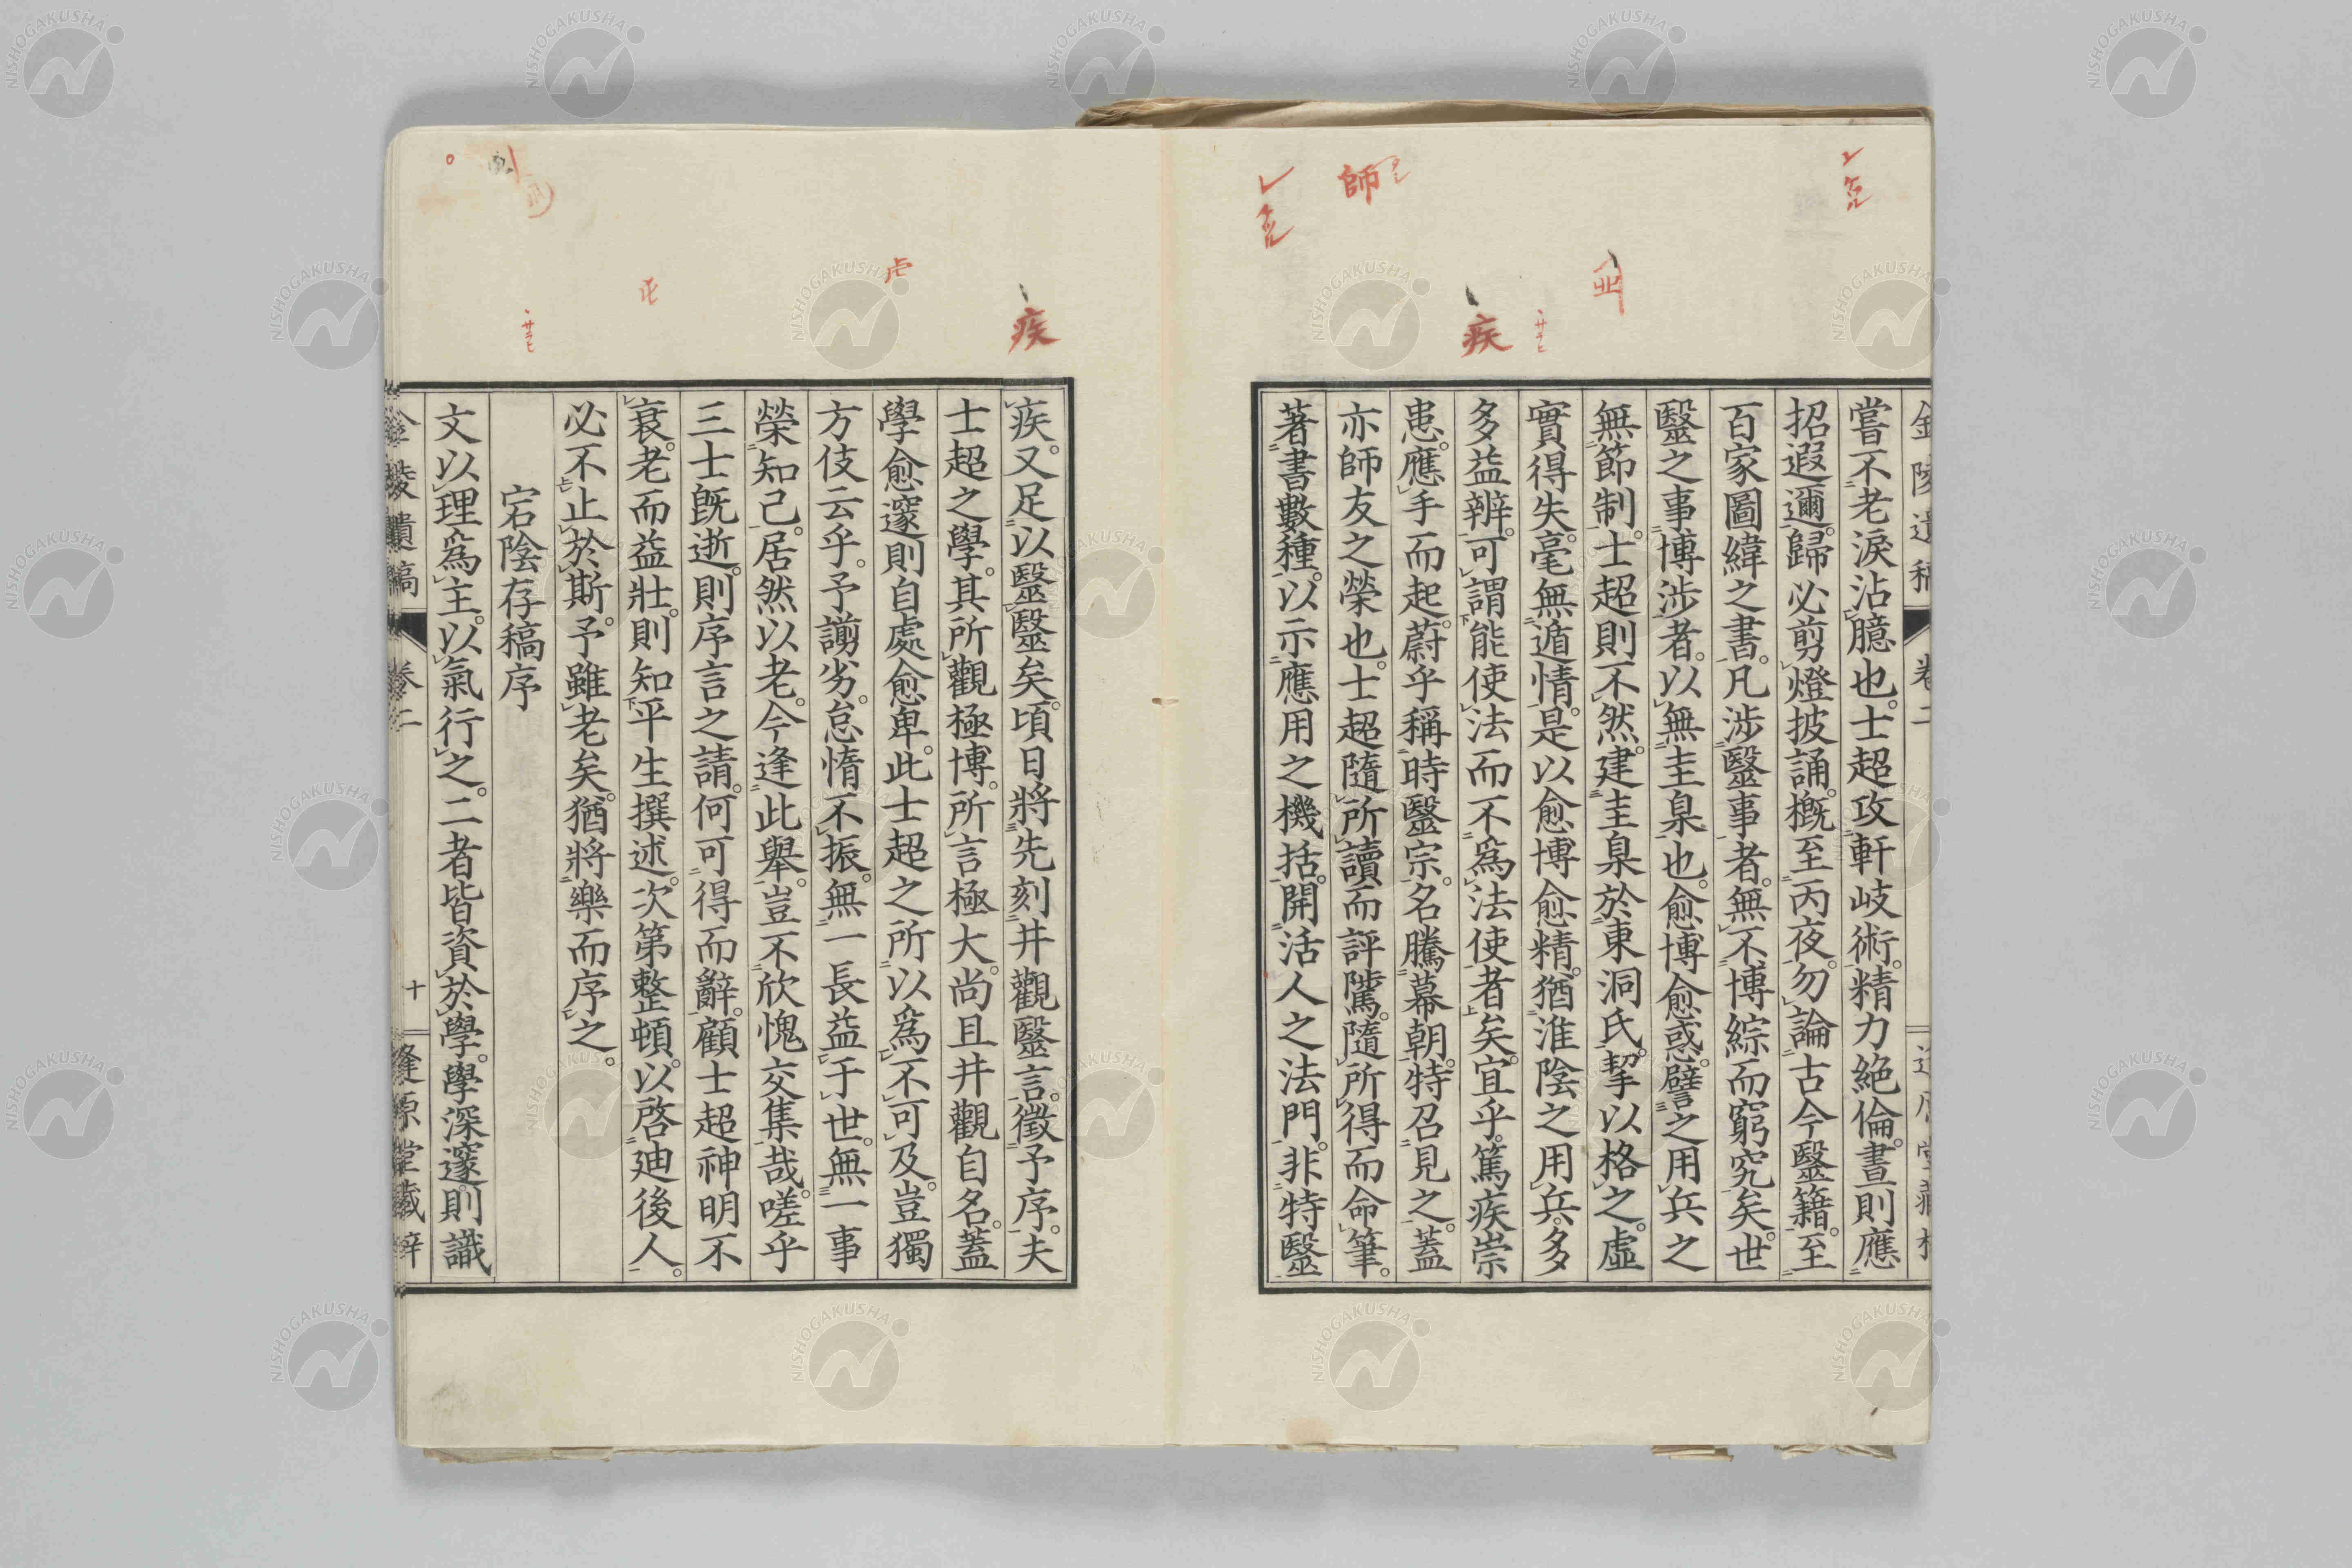 師
疾
金陵遺稿 卷二
嘗不老淚沾臆也。士超攻軒岐術。精力絶倫。晝則應
招遐邇。歸必剪燈披誦。概至丙夜。勿論古今醫籍。至
百家圖緯之書。凡涉醫事者。無不博綜而窮究矣。世
醫之事博涉者。以無圭臬也。愈博愈惑。譬之用兵之
無節制。士超則不然。建圭臬於東洞氏。挈以格之。虛
實得失。毫無遁情。是以愈博愈精。猶淮陰之用兵。多
多益辨。可謂能使法而不爲法使者矣。宜乎。篤疾崇
患。應手而起。蔚乎稱時醫宗。名騰幕朝。特召見之。蓋
亦師友之榮也。士超隨所讀而評隲。隨所得而命筆。
著書數種。以示應用之機括。開活人之法門。非特醫
疾
疾。又足以醫醫矣。頃日將先刻井觀醫言。徵予序。夫
士超之學。其所觀極博。所言極大。尚且井觀自名。蓋
學愈邃則自處愈卑。此士超之所以爲不可及。豈獨
方伎云乎。予謭劣。怠惰不振。無一長益于世。無一事
榮知己。居然以老。今逢此舉。豈不欣愧交集哉。嗟乎
三士既逝。則序言之請。何可得而辭。顧士超神明不
衰。老而益壯。則知平生撰述。次第整頓。以啓迪後人。
必不止於斯。予雖老矣。猶將樂而序之。
宕陰存稿序
文以理爲主。以氣行之。二者皆資於學。學深邃則識
卷二 十 逢原堂藏梓
NISHOGAKUSHA